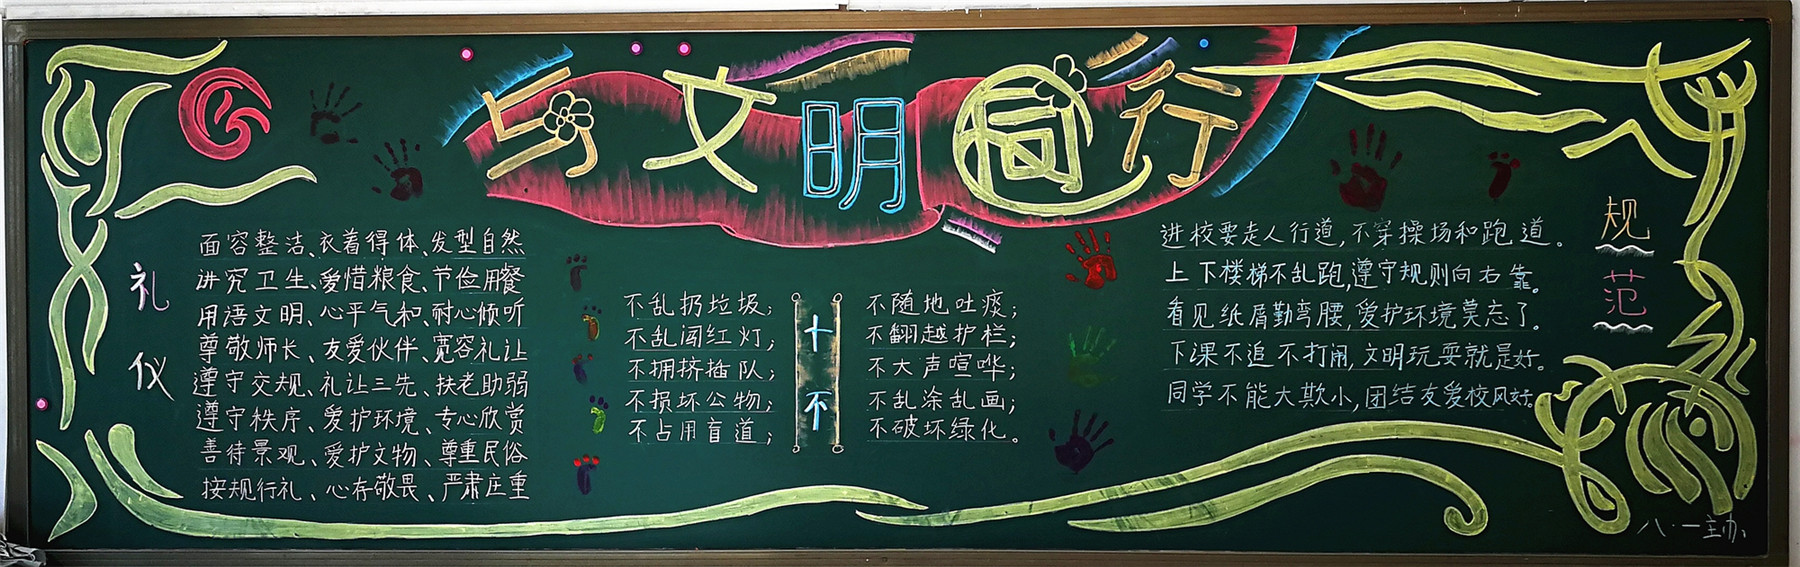 与文明同行
礼仪
面容整洁、衣着得体、发型自然
讲究卫生、爱惜粮食、节俭用餐
用语文明、心平气和、耐心倾听
尊敬师长、友爱伙伴、宽容礼让
遵守交规、礼让三先、扶老助弱
遵守秩序、爱护环境、专心欣赏
善待景观、爱护文物、尊重民俗
按规行礼、心存敬畏、严肃庄重
不乱扔垃圾；
不乱闯红灯；
不拥挤插队；
不损坏公物；
不占用盲道；
十不
不随地吐痰；
不翻越护栏；
不大声喧哗；
不乱涂乱画；
不破坏绿化。
进校要走人行道，不穿操场和跑道。
上下楼梯不乱跑，遵守规则向右靠。
看见纸屑勤弯腰，爱护环境莫忘了。
下课不追不打闹，文明玩耍就是好。
同学不能大欺小，团结友爱校风好。
规范
八·一主办